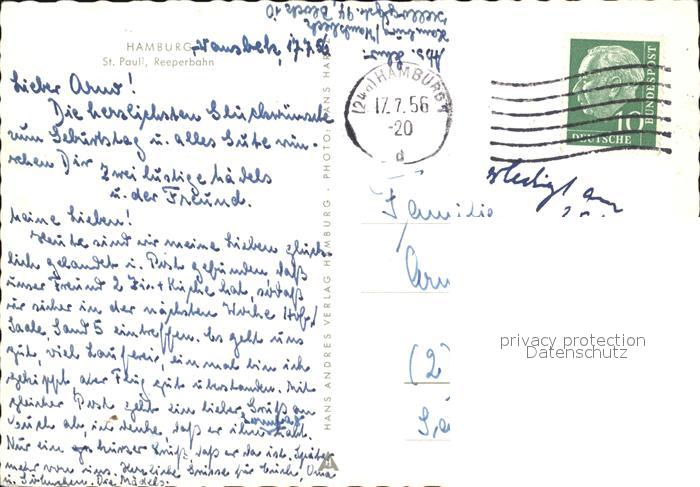 HAMBURG
St. Pauli, Reeperbahn
Wandsbek, 17.7.56
Lieber Arno!
Die herzlichsten Glückwünsche
zum Geburtstag u. alles Gute wün-
schen Dir zwei lustige Mädels
u. der Freund.
Meine Lieben!
Heute sind wir meine Lieben glück-
lich gelandet u. Post gefunden daß
unser Freund 2 Zim + Küche hat, sodaß
wir sicher in der nächsten Woche Hof/
Saale, 5 eintreffen. Es geht uns
gut, viel Lauferei, einmal bin ich
gekippt, aber Flug gut überstanden. Mit
gleicher Post geht ein lieber Gruß an
euch ab, ich denke, daß er
Nur ein kurzer Gruß, daß er da ist. Später
mehr von uns. Herzliche Grüße für Euch, Oma
u. Die Mädels.
HANS ANDRES VERLAG HAMBURG · PHOTO: HANS HAR
Abs.
Hamburg/Wandsbek
94, Block 10
(24a) HAMBURG
17.7.56
-20
d
10
DEUTSCHE
BUNDESPOST
erledigt am
Familie
Arn
(2
privacy protection
Datenschutz